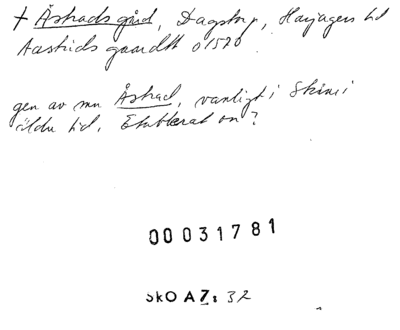 † Åstrads gård, Dagstorp, Harjagers hd
Aastrids gaardtt o1570
gen av mn Åstrad, vanligt i Skåne i
äldre tid. Etablerat on?
00031781
SkO A7: 32